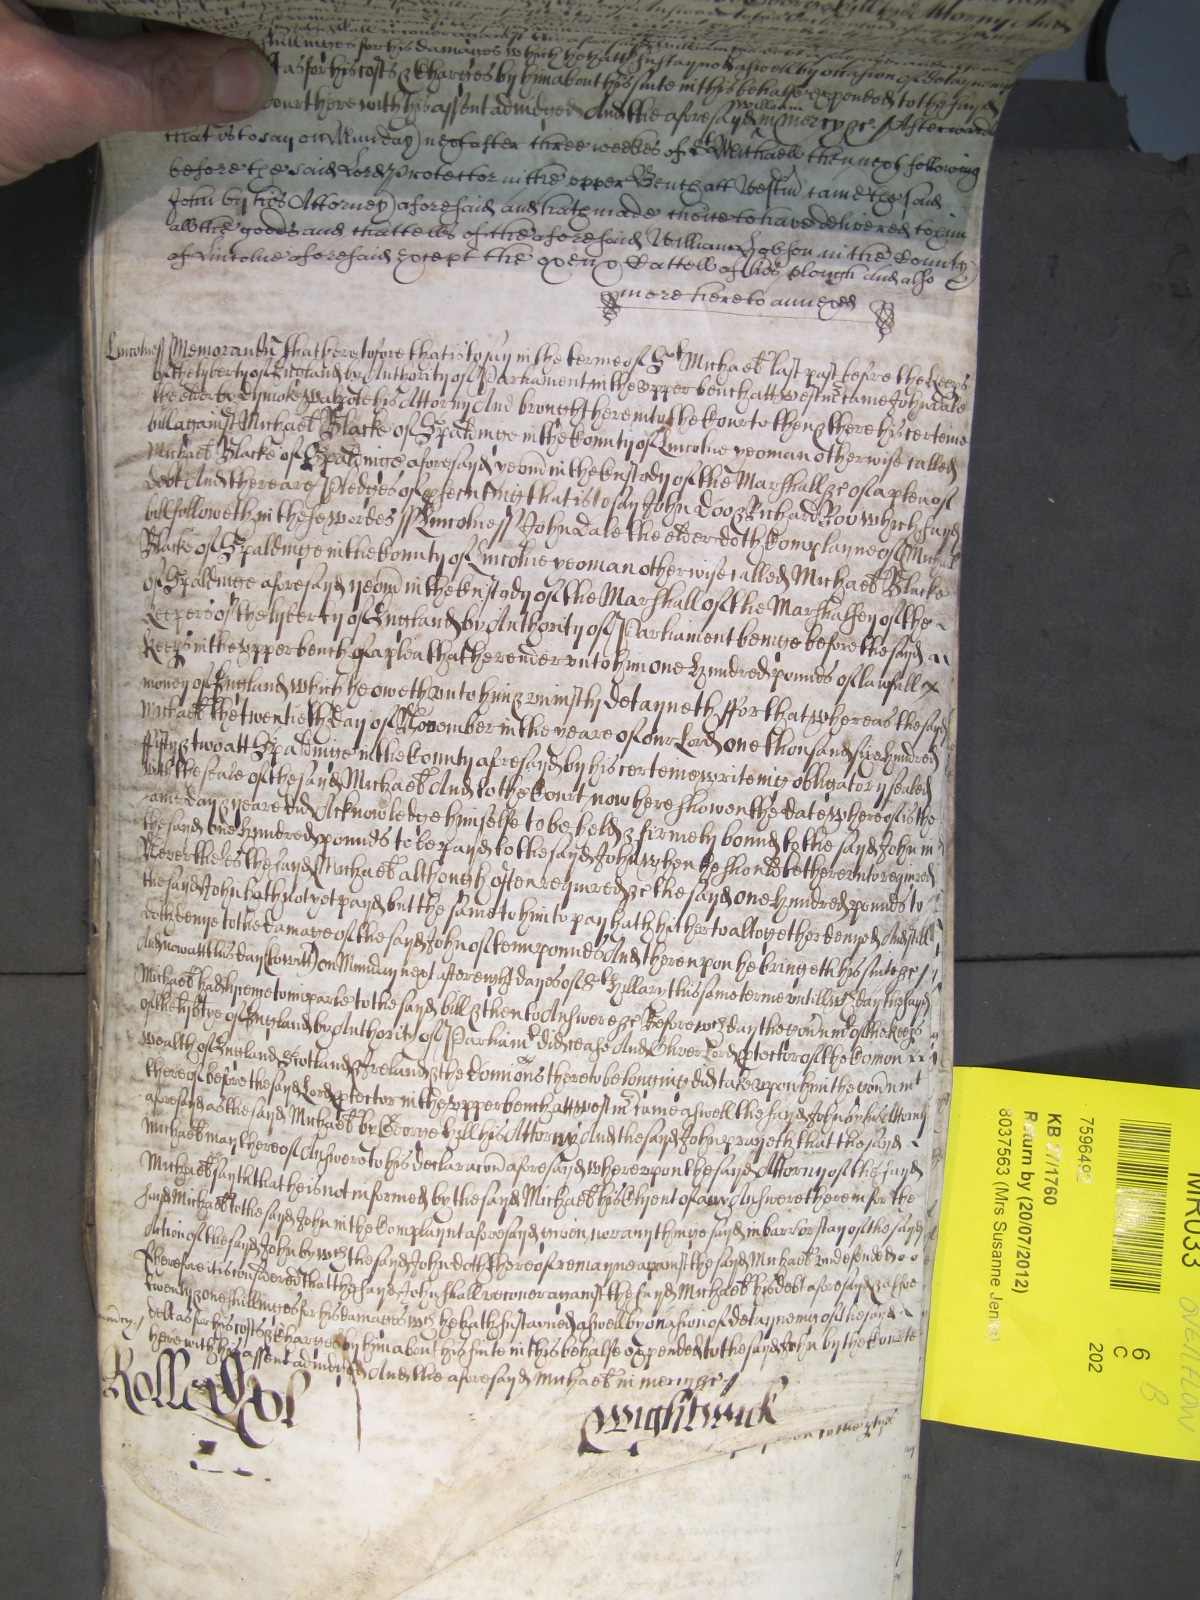 shillings for his damages which he hath sustayned aswell by occasion of detayneing
as for his costs & charges by him about his suite in this behalfe expended to the sayd
Court here with his assent adiudged And the aforesayd William in mercy &c Afterwards
that is to say on Munday next after three weekes of St Michaell then next following
before the said Lord Protector in the upper Bench att Westm came the said
John by his Attorney aforesaid and hath made choice to have delivered to him
all the goods and chattells of the aforesaid William in the County
of Lincolne aforesaid except the oxen & Cattell of his plough and also
more hereto annexed
Lincolness Memorandu that heretofore that is to say in the terme of St Michael last past before the keeps
of the lyberty of England by Authority of Parliament in the upper bench att westmr came John dale
the elder by dymoke walpole his Attorny And brought here into the Court then & there his certeine
bill against Michael Blacke of Spaldinge in the County of Lincolne yeoman otherwise called
Michael Blacke of Spaldinge aforesayd yeom in the custody of the Marshall &c of a plea of
debt And there are Pledges of psecuting that is to say John Doo & Richard Roo which sayd
bill followeth in these wordes ss Lincolness John Dale the elder doth Complayne of Michael
Blacke of Spaldinge in the County of Lincolne yeoman otherwise called Michael Blacke
of Spaldinge aforesayd yeom in the Custody of the Marshall of the Marshalsey of the
keepers of the lyberty of England by Authority of Parliament beinge before the sayd
keeps in the upper bench of a plea that he render unto him one hundred pounds of lawfull
money of England which he oweth unto him & uniustly detayneth ffor that whereas the sayd
Michael the twentieth day of November in the yeare of our Lord one thousand six hundred
ffifty & two att Spaldinge in the County aforesayd by his certeine writeing obligatory sealed
with the seale of the sayd Michael And to the Court now here showen the date whereof is the
same day & yeare did Acknowledge himselfe to be held & firmely bound to the sayd John in
the sayd one hundred pounds to be payd to the sayd John when he should be thereunto required
Nevertheles the sayd Michael although often required &c the sayd one hundred pounds to
the sayd John hath not yet payd but the same to him to pay hath hitherto altogether denyed And still
doth denye to the damage of the sayd John of tenn pounds And thereupon he bringeth his suite &c
And now att this day (to witt) on Munday next after eight dayes of St Hillary this same terme untill wch day the sayd
Michael had lycence to imparle to the sayd bill & then to Answere &c Before wch day the governmt of the keeps
of the libtye of England by Authority of Parliamt did cease And Oliver Lord Ptector of the Comon
wealth of England Scotland & Ireland & the Domions thereto belonging did take uppon him the govnmt
thereof before the sayd Lord ptector in the upper bench att westmr came aswell the sayd John by his Attorny
aforesayd as the sayd Michael by George Hill his Attorny And the sayd John prayeth that the sayd
Michael may thereof Answere to his declaracon aforesayd whereuppon the sayd Attorny of the sayd
Michael sayth that he is not informed by the sayd Michael his Clyent of any Answere therein for the
sayd Michael to the sayd John in the Complaynt aforesayd given nor any thinge sayd in barr or stay of the sayd
Action of the sayd John by wch the sayd John doth thereof remayne against the sayd Michael undefended
Therefore it is considered that the sayd John shall recover against the sayd Michael his debt aforesayd & alsoe
twenty & one shillinges for his damages wch he hath sustained aswell by occasion of detayneing of the sayd
debt as for his costs & charges by him about his suite in this behalfe expended to the sayd John by the Courte
here with his assent adiudged And the aforesayd Michael in mercy &c
Wightwick
7596492
KB 27/1760
Return by (20/07/2012)
8037563 (Mrs Susanne Jen
MR033
6
C
202
OVERFLOW
B